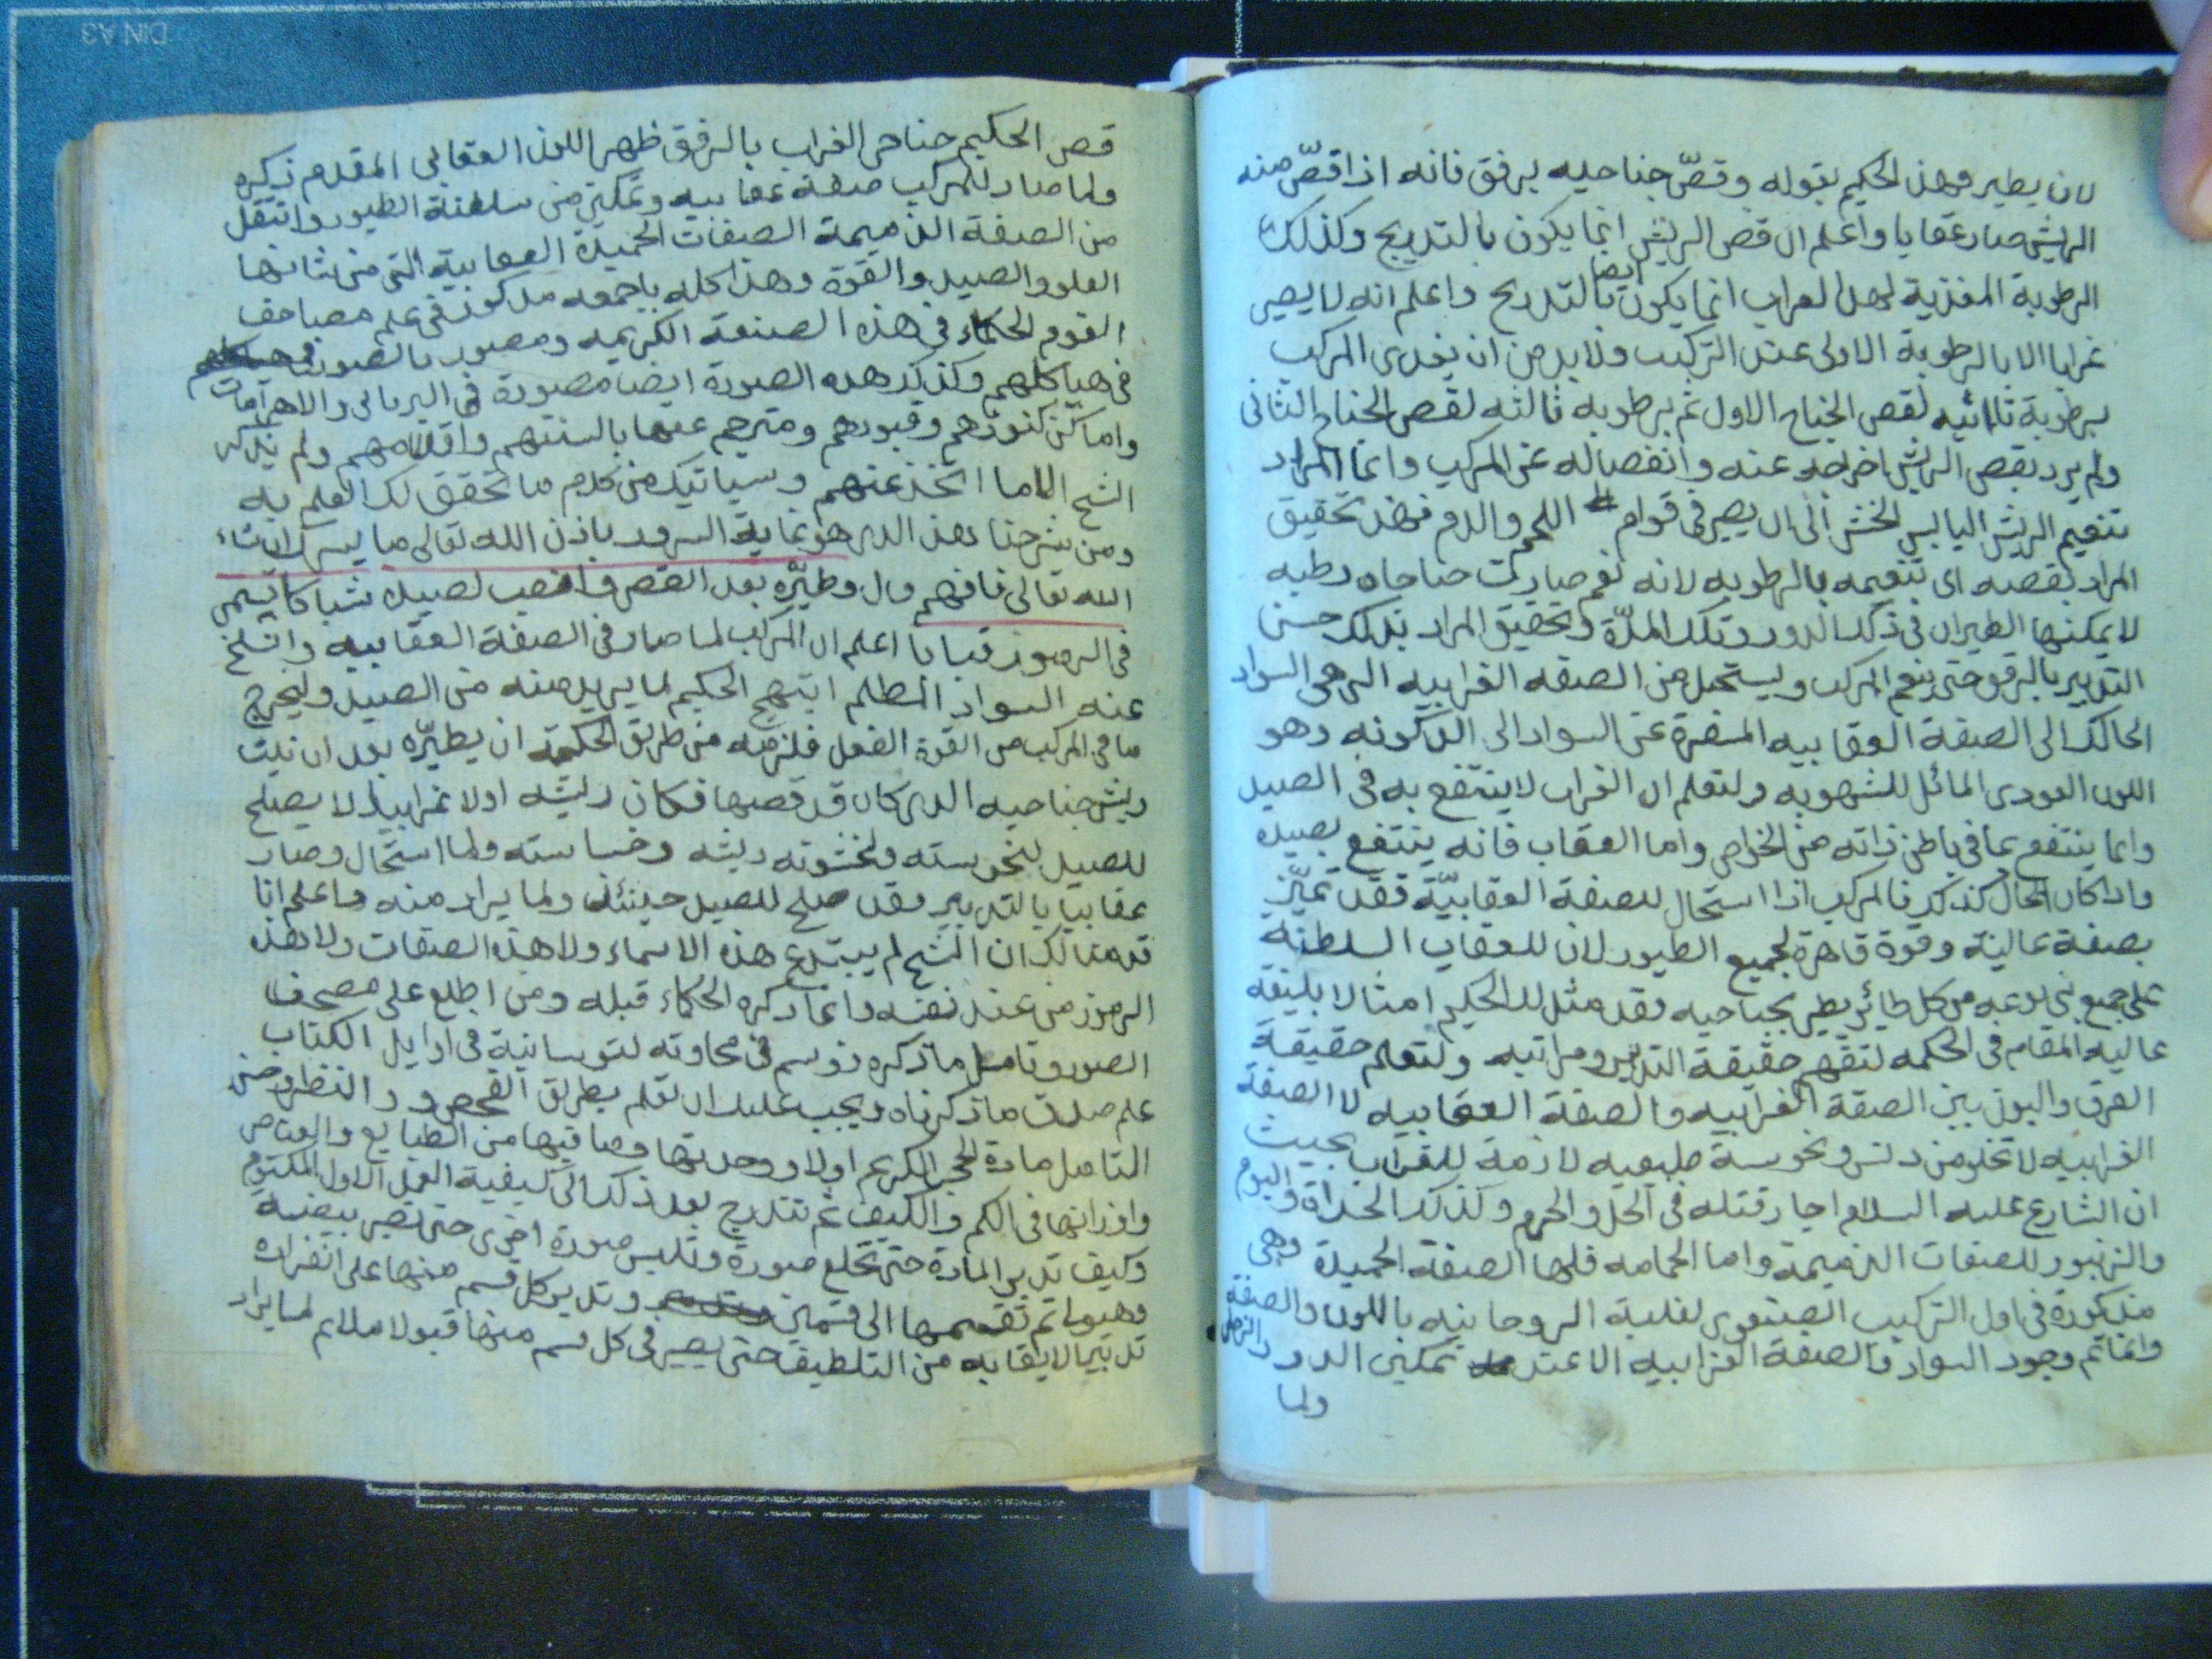 لان يطير وهذ الحكيم بقوله وقصّ جناحيه برفق فانه اذا قصّ منه
الريش صار عقابا واعلم ان قص الريش انما يكون بالتدريج وكذلك
الرطوبة المغذية لهذا الغراب انما يكون ايضا بالتدريج واعلم انه لا يصير
غرابا الا بالرطوبة الاولى عند التركيب ولا بد من ان يغدى المركب
برطوبة ثانيه لقص الجناح الاول ثم برطوبه ثالثه لقص الجناح الثانى
ولم يرد بقص الريش اخراجه عنه وانفصاله عن المركب وانما المراد
تنعيم الريش اليابس الخشن الى ان يصير فى قوام اللحم والدم فهذ تحقيق
المراد بقصه اى تنعيمه بالرطوبه لانه نعم صارت جناحاه رطبه
لا يمكنها الطيران فى ذلك الدور وتلك المدّة وتحقيق المراد بذلك حسن
التدبير بالرفق حتى ينعم المركب ويستحيل من الصفه الغرابيه الى السواد
الحالك الى الصفة العقابيه المسفرة عن السواد الى الدكونه وهو
اللون العودى المائل للشهوبه ولتعلم ان الغراب لا ينتفع به فى الصيد
وانما ينتفع بما فى باطن ذاته من الخواص واما العقاب فانه ينتفع بصيده
واذا كان الحال كذلك فالمركب اذا استحال للصفة العقابيّة فقد تميّز
بصفة عالية وقوة قاهرة لجميع الطيور لان للعقاب السلطنة
على جميع بنى نوعه من كل طائر يطير بجناحيه فقد مثل لك الحكيم امثالا بليغة
عاليه المقام فى الحكمه لتفهم حقيقة التدبير ومراتبه ولتعلم حقيقة
الفرق والبون بين الصفة الغرابيه والصفة العقابيه لا الصفة
الغرابيه لا تخلو من دنس ونحوسة طبيعيه لازمة للغراب بحيث
ان الشارع عليه السلام اجاز قتله فى الحل والحرم وكذلك الحداة والبوم
والزنبور للصفات الذميمة واما الحمامه فلها الصفة الحميدة وهى
مذكورة فى اول التركيب الصنعوى لغلبة الروحانيه باللون والصفة
وانما تم وجود السواد والصفة الغرابيه الا عند تمكين الدور الزحلى
ولما
قص الحكيم جناحى الغراب بالرفق ظهر اللون العقابى المقدم ذكره
ولما صار للمركب صفة عقابيه وتمكين من سلطنة الطيور وانتقل
من الصفة الذميمة الصفات الحميدة العقابية التى من شانها
العلو والصيد والقوة وهذا كله باجمعه مذكور فى علم مصاحف
القوم الحكماء فى هذه الصنعة الكريمه ومصور بالصور
فى هياكلهم وكذلك هذه الصورة ايضا مصورة فى البرابى والاهرامات
واماكن كنوزهم وقبورهم ومترجم عنها بالسنتهم واقلامهم ولم يذكر
الشيخ الا ما اتخذ عنهم وسياتيك من كلام ما تحقق لك العلم به
ومن شرحنا هذ الذى هو غاية السرور باذن الله تعالى ما يسرك ان شاء
الله تعالى فافهم قال وطيّره بعد القص وانصب لصيده شباكا تسمى
فى الرموز قبابا اعلم ان المركب لما صار فى الصفة العقابيه وانسلخ
عنه السواد المظلم ابتهج الحكيم لما يريد منه من الصيد وليخرج
ما فى المركب من القوة الفعل فلزمه من طريق الحكمة ان يطيّره بعد ان نبت
ريش جناحيه الذى كان قد قصها فكان ريشه اولا غرابيا لا يصلح
للصيد لنحوسته ولخشونه ريشه وخساسته ولما استحال وصار
عقابيا بالتدبير فقد صلح للصيد حينئذ ولما يراد منه واعلم انا
قدمنا لك ان الشيخ لم يبتدع هذه الاسماء ولا هذه الصفات ولا هذه
الرموز من عند نفسه وانما ذكره الحكماء قبله ومن اطلع على مصحف
الصور وتامل ما ذكره زوسم فى محاورته لتوسانية فى اوايل الكتاب
علم صدق ما ذكرناه ويجب عليك ان تعلم بطريق الفحص والنظر وحسن
التامل مادة الحجر الكريم اولا ووحدتها وما فيها من الطبايع والعناصر
واوزانها فى الكم والكيف ثم تتدرج بعد ذلك الى كيفية العمل الاول المكتوم
وكيف تدبير المادة حتى تخلع صورة وتلبس صورة اخرى حتى تصير بيضة
وهيولا ثم تقسمها الى قسمين وتدبر كل قسم منها على انفراده
تدبيرا لايقا به من التلطيف حتى يصير فى كل قسم منها قبولا ملايم لما يراد